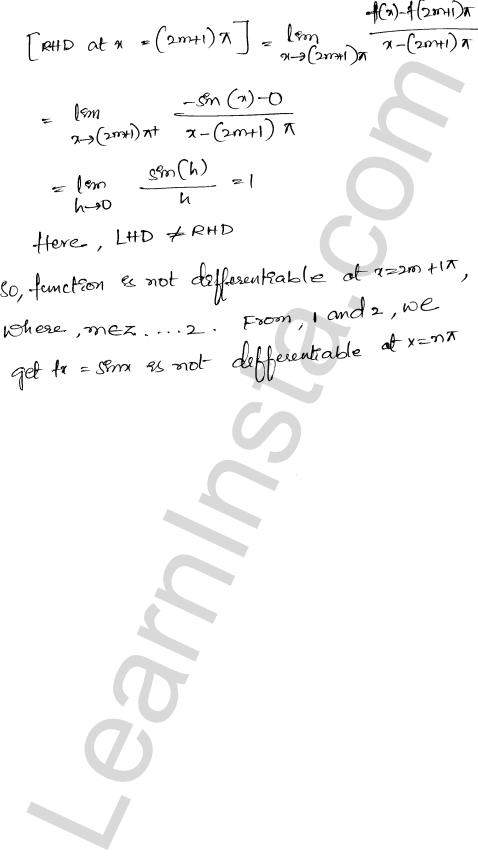 [RHD at x = (2m+1)π] = lim x→(2m+1)π f(x)-f(2m+1)π / x-(2m+1)π
= lim x→(2m+1)π+ -sin(x)-0 / x-(2m+1)π
= lim h→0 sin(h) / h = 1
Here, LHD ≠ RHD
So, function is not defferentiable at x=2m+1π,
where, m∈z.....2. From, 1 and 2, we
get fx = sinx is not defferentiable at x=nπ
LearnInsta.com